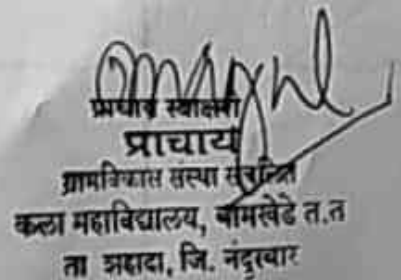 प्राचार्य स्वाक्षरी
प्राचार्य
ग्रामविकास संस्था संचलित
कला महाविद्यालय, बामखेडे त.त
ता शहादा, जि. नंदुरबार